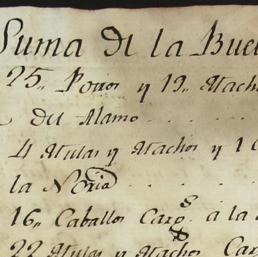 Suma de la Buel
25,, Potros y 19,, Mach
del Alamo . . . .
4 Mulas y Machos y 1
la Noria . . . .
16,, Caballos Cazos a la
22 Mulas y Machos Caz